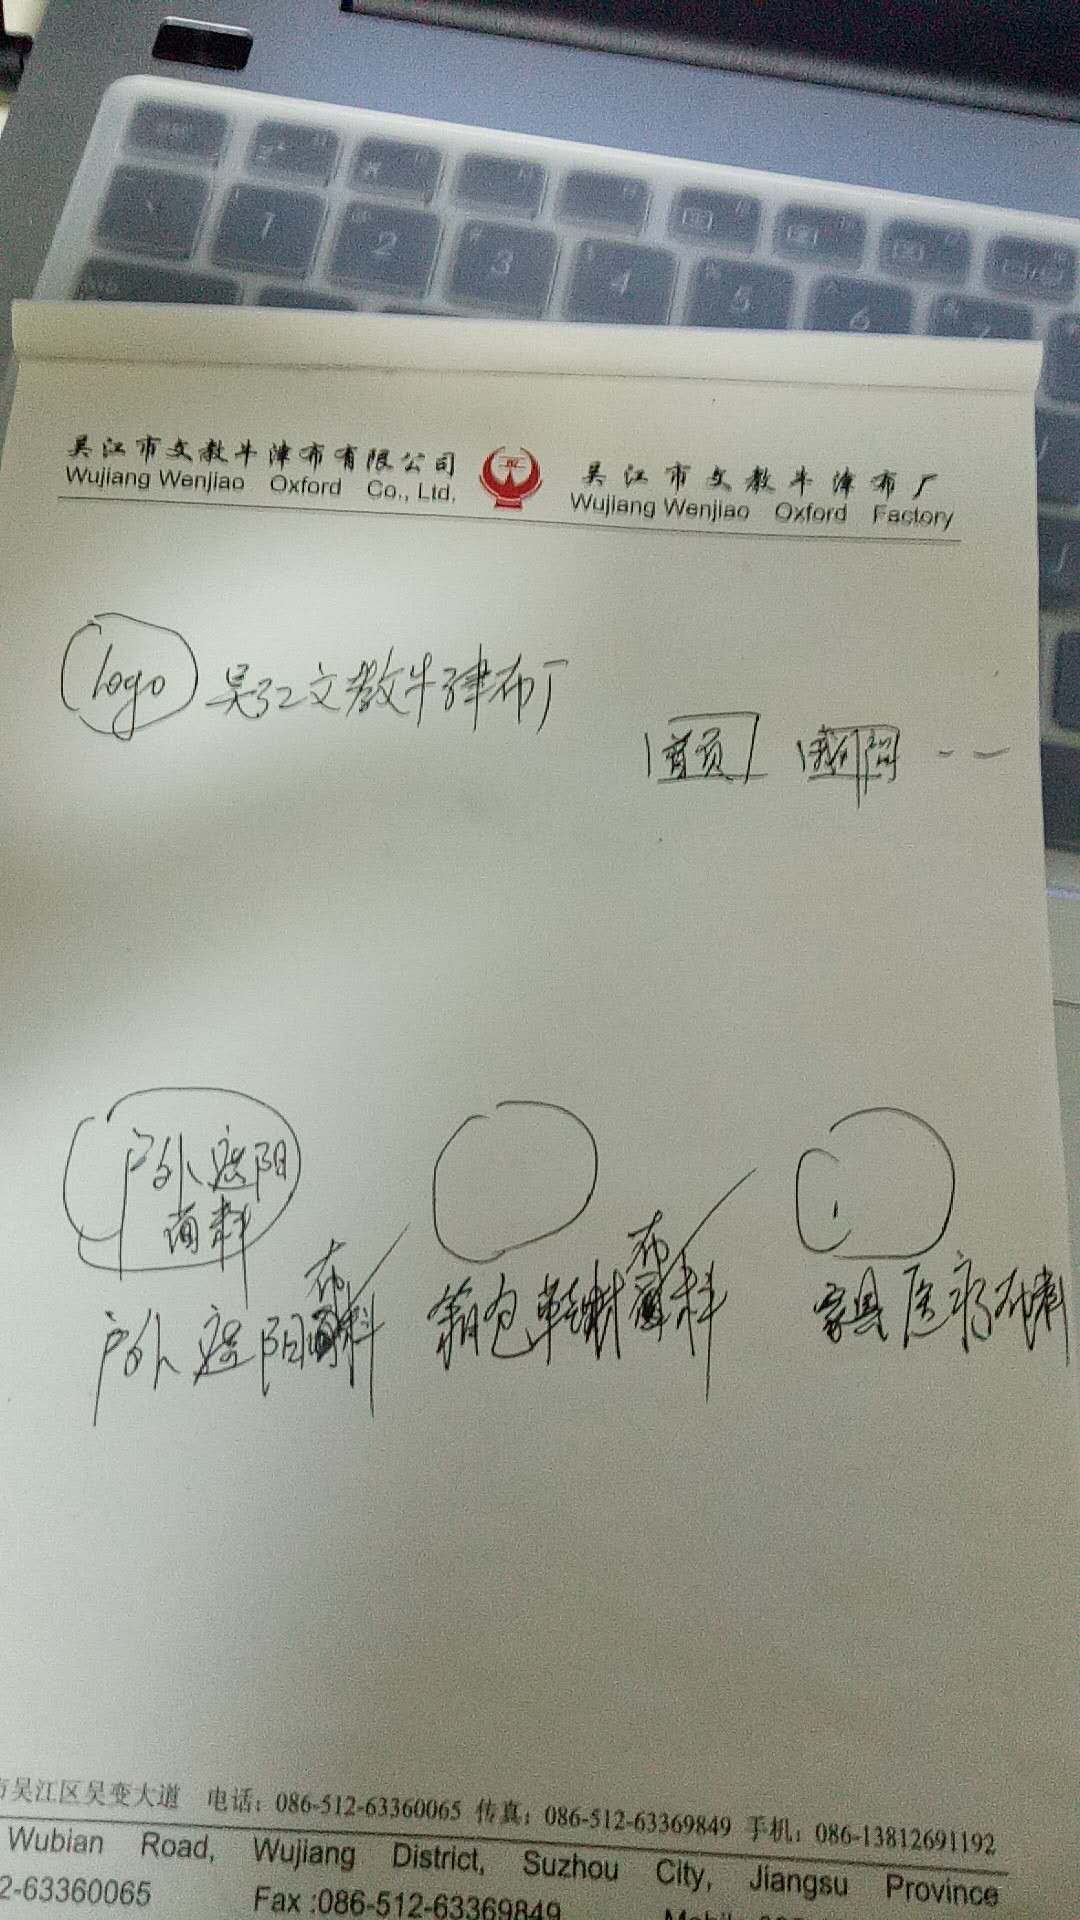 1
2
3
4
5
6
吴江市文教牛津布有限公司
Wujiang Wenjiao Oxford Co., Ltd.
吴江市文教牛津布厂
Wujiang Wenjiao Oxford Factory
logo 吴江文教牛津布厂
首页
户外遮阳
面料
布 布
户外遮阳料 箱包鞋材料 家具医疗布料
市吴江区吴变大道 电话：086-512-63360065 传真：086-512-63369849 手机：086-13812691192
Wubian Road, Wujiang District, Suzhou City, Jiangsu Province
2-63360065 Fax :086-512-63369849